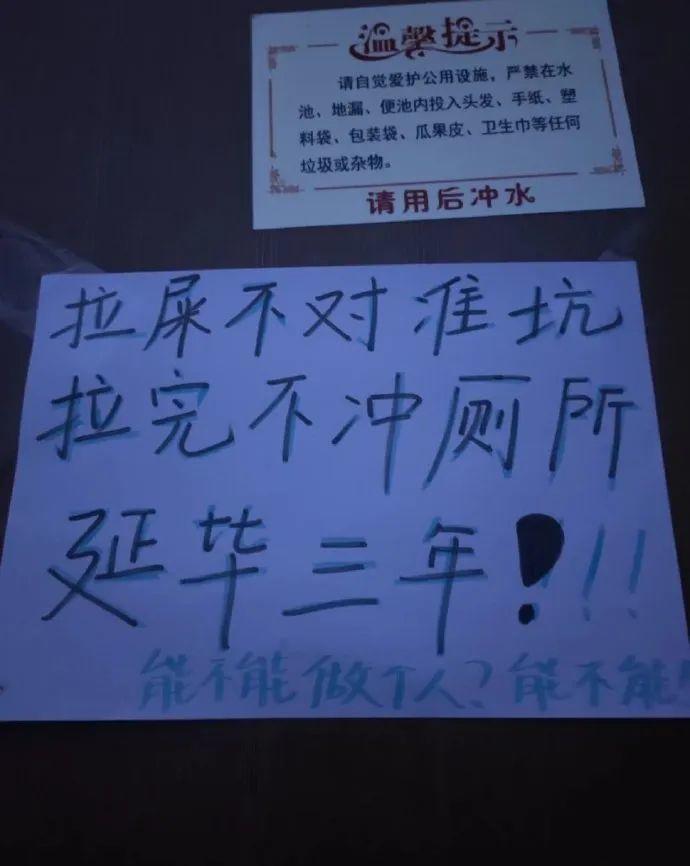 温馨提示
请自觉爱护公用设施，严禁在水
池、地漏、便池内投入头发、手纸、塑
料袋、包装袋、瓜果皮、卫生巾等任何
垃圾或杂物。
请用后冲水
拉屎不对准坑
拉完不冲厕所
延毕三年!!!!
能不能做个人？能不能